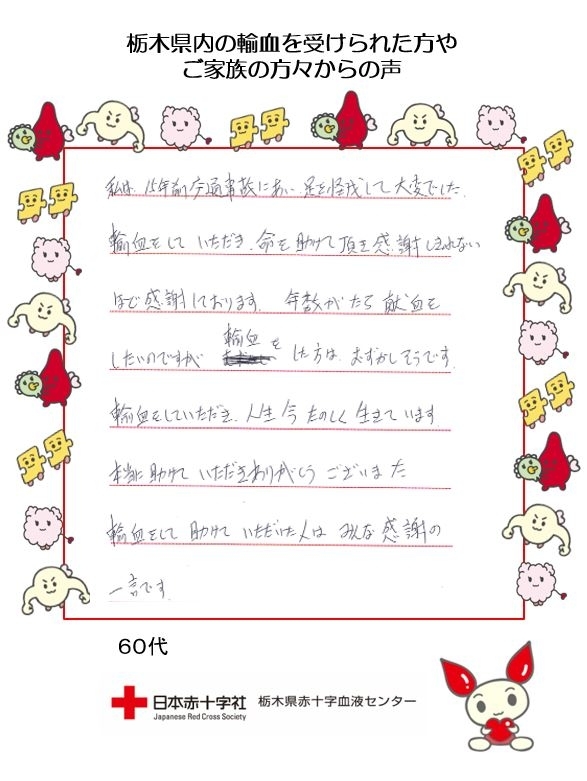 栃木県内の輸血を受けられた方や
ご家族の方々からの声
私は、15年前交通事故にあい足を怪我して大変でした。
輸血をしていただき、命を助けて頂き感謝しきれない
ほど感謝しております。年数がたち献血を
したいのですが 輸血をした方は、むずかしそうです。
輸血をしていただき、人生今たのしく生きています。
本当に助けていただきありがとうございました
輸血をして助けていただいた人はみんな感謝の
一言です。
60代
日本赤十字社 栃木県赤十字血液センター
Japanese Red Cross Society